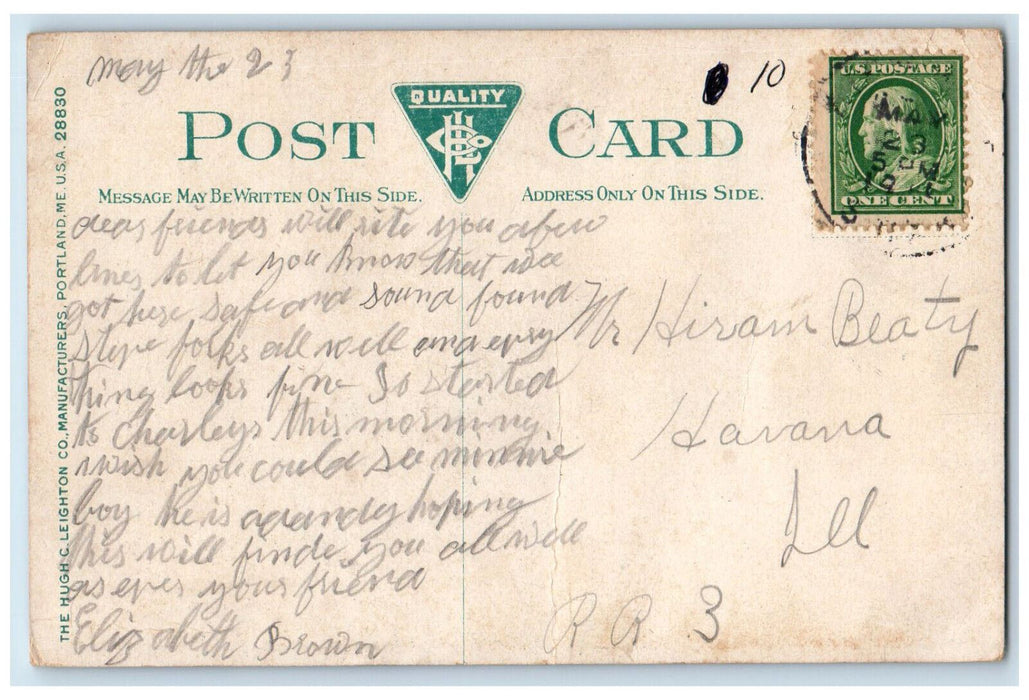 may the 23
10
U.S. POSTAGE
MAY
23
5 PM
ONE CENT
QUALITY
POST CARD
MESSAGE MAY BE WRITTEN ON THIS SIDE.
ADDRESS ONLY ON THIS SIDE.
THE HUGH C. LEIGHTON CO., MANUFACTURERS, PORTLAND, ME. U.S.A. 28830
dear friends will rite you afew
lines to let you know that wee
got here safe and sound found
steve folks all well and evry
thing looks fine So started
to Charleys this morning
wish you could see minnie
boy he is adandy hoping
this will finde you all well
as ever your friend
Elizabeth Brown
Mr Hiram Beaty
Havana
Ill
RR 3